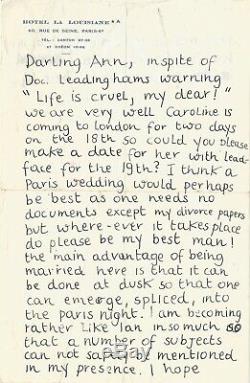 HOTEL LA LOUISIANE **
60, RUE DE SEINE, PARIS-6e
Darling Ann, inspite of
Doc. Leadinghams warning
"Life is cruel, my dear!"
we are very well Caroline is
coming to london for two days
on the 18th so could you please
make a date for her with lead-
face for the 19th? I think a
Paris wedding would perhaps
be best as one needs no
documents except my divorce papers
but where-ever it takes place
do please be my best man!
the main advantage of being
married here is that it can
be done at dusk so that one
can emerge, spliced, into
the paris night. I am becoming
rather like Ian in so much so
that a number of subjects
can not safely be mentioned
in my presence. I hope